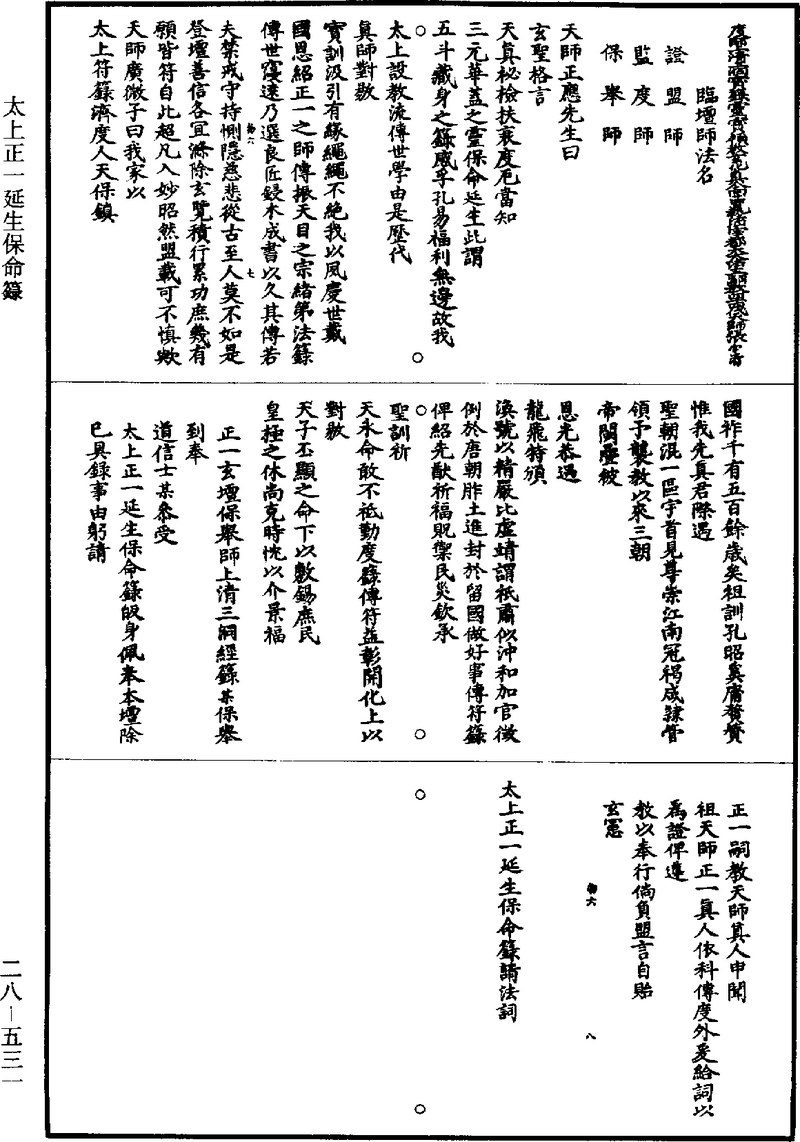 臨壇師法名
證盟師
監度師
保舉師
天師正應先生曰
玄聖格言
天真祕檢扶衰度厄當知
三元華蓋之靈保命延生此謂
五斗藏身之籙咸孚孔易福利無邊故我
太上設教流傳世學由是歷代
真師對敭
寶訓汲引有緣繩繩不絕我以風慶世戴
國恩紹正一之師傳振天目之宗緒第法籙
傳世寖遠乃選良匠鋟木成書以久其傳若
夫禁戒守持惻隱慈悲從古至人莫不如是
登壇善信各宜滌除玄覽積行累功庶幾有
願皆符自此超凡入妙昭然盟載可不慎歟
天師廣微子曰我家以
太上符籙濟度人天保鎮
國祚千有五百餘歲矣祖訓孔昭奚庸贅贊
惟我先真君際遇
聖朝混一區宇首見尊崇江南冠褐咸隷管
領予襲教以來三朝
帝閽疊被
恩光恭遇
龍飛特頒
渙號以精嚴比虛靖謂祗肅似沖和加官徵
例於唐朝胙土進封於留國做好事傳符籙
俾紹先猷祈福貺禦民災欽承
聖訓祈
天永命敢不祗勤度籙傳符益彰開化上以
對敭
天子丕顯之命下以敷錫庶民
皇極之休尚克時忱以介景福
正一玄壇保舉師上清三洞經籙某保舉
到奉
道信士某叅受
太上正一延生保命籙皈身佩奉本壇除
已具錄事由躬請
正一嗣教天師真人申聞
祖天師正一真人依科傳度外爰給詞以
為證俾遵
教以奉行倘負盟言自貽
玄憲
太上正一延生保命籙請法詞
太上正一延生保命籙
二八—五三一